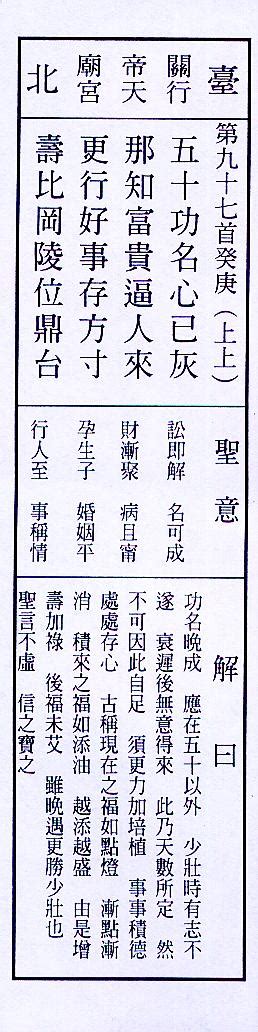 臺北
關行
帝天
廟宮
第九十七首癸庚（上上）
五十功名心已灰
那知富貴逼人來
更行好事存方寸
壽比岡陵位鼎台
聖意
訟即解　名可成
財漸聚　病且甯
孕生子　婚姻平
行人至　事稱情
解曰
功名晚成　應在五十以外　少壯時有志不
遂　衰遲後無意得來　此乃天數所定　然
不可因此自足　須更力加培植　事事積德
處處存心　古稱現在之福如點燈　漸點漸
消　積來之福如添油　越添越盛　由是增
壽加祿　後福未艾　雖晚遇更勝少壯也
聖言不虛　信之寶之